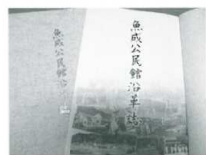 魚成公民館沿革誌
魚成公民館沿革誌